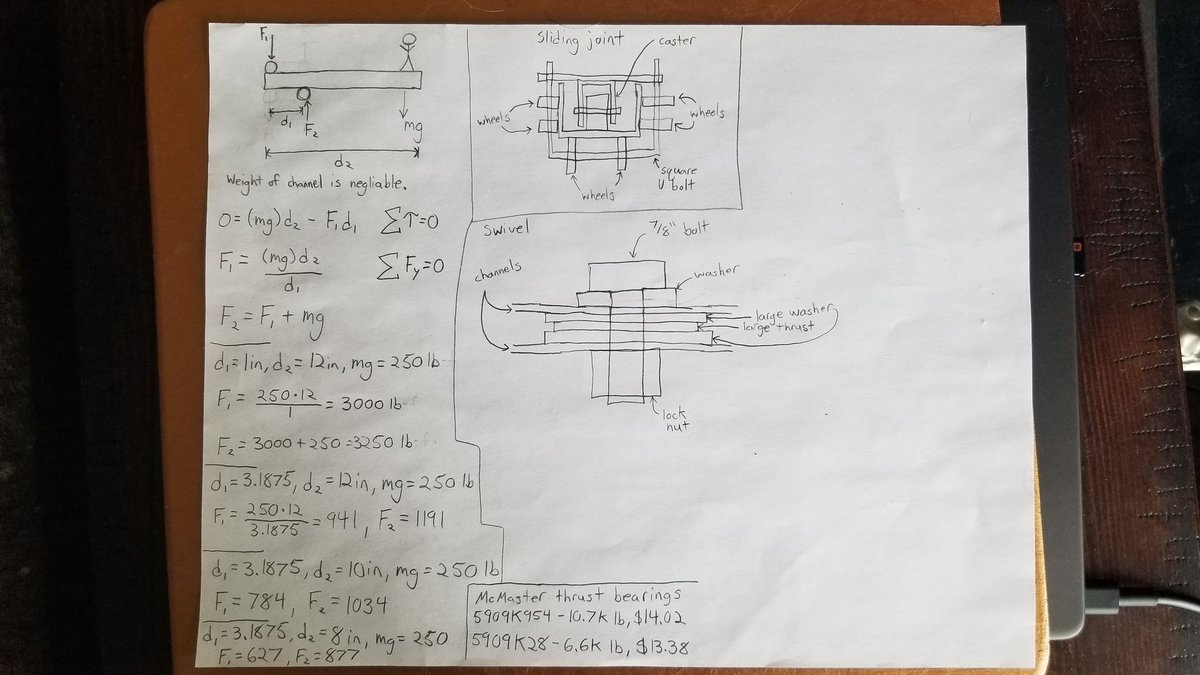 F₁
d₁
F₂
mg
d₂
Weight of channel is negliable.
0 = (mg)d₂ - F₁d₁ ΣT=0
F₁ = (mg)d₂
d₁
ΣFy=0
F₂ = F₁ + mg
d₁ = 1in, d₂ = 12in, mg = 250 lb
F₁ = 250·12
1
= 3000 lb
F₂ = 3000 + 250 = 3250 lb
d₁ = 3.1875, d₂ = 12in, mg = 250 lb
F₁ = 250·12
3.1875
= 941, F₂ = 1191
d₁ = 3.1875, d₂ = 10in, mg = 250 lb
F₁ = 784, F₂ = 1034
d₁ = 3.1875, d₂ = 8 in, mg = 250
F₁ = 627, F₂ = 877
Sliding joint
caster
wheels
wheels
wheels
square
U bolt
Swivel
7/8" bolt
channels
washer
large washer
large thrust
lock
nut
McMaster thrust bearings
5909K954 - 10.7k lb, $14.02
5909K28 - 6.6k lb, $13.38